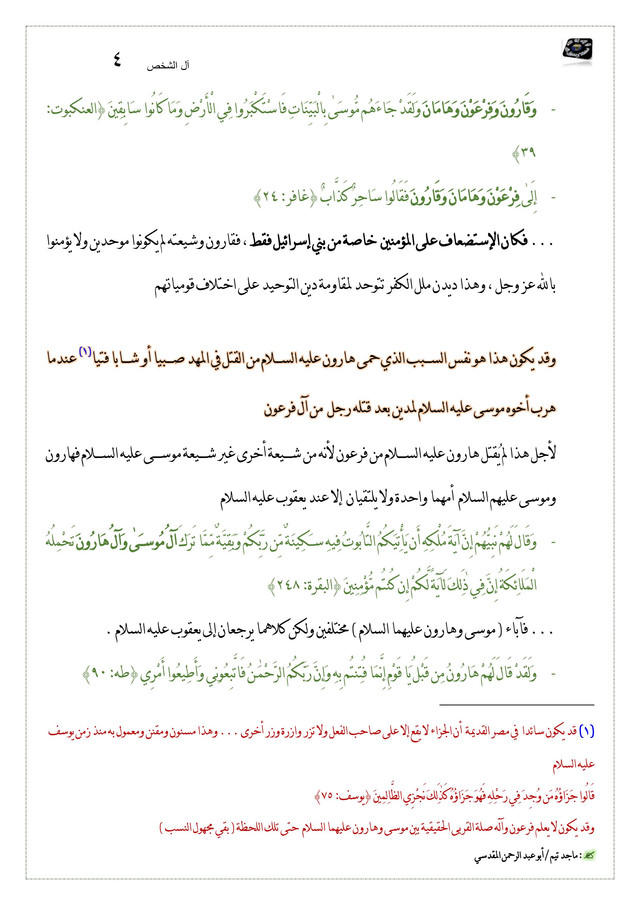 آل الشخص ٤
- وَقَارُونَ وَفِرْعَوْنَ وَهَامَانَ وَلَقَدْ جَاءَهُم مُّوسَىٰ بِالْبَيِّنَاتِ فَاسْتَكْبَرُوا فِي الْأَرْضِ وَمَا كَانُوا سَابِقِينَ ﴿العنكبوت:
٣٩﴾
- إِلَىٰ فِرْعَوْنَ وَهَامَانَ وَقَارُونَ فَقَالُوا سَاحِرٌ كَذَّابٌ ﴿غافر: ٢٤﴾
... فكان الإستضعاف على المؤمنين خاصة من بني إسرائيل فقط ، فقارون وشيعته لم يكونوا موحدين ولا يؤمنوا
بالله عز وجل ، وهذا ديدن ملل الكفر تتوحد لمقاومة دين التوحيد على اختلاف قومياتهم
وقد يكون هذا هو نفس السبب الذي حمى هارون عليه السلام من القتل في المهد صبيا أو شابا فتيا(١) عندما
هرب أخوه موسى عليه السلام لمدين بعد قتله رجل من آل فرعون
لأجل هذا لم يُقتل هارون عليه السلام من فرعون لأنه من شيعة أخرى غير شيعة موسى عليه السلام فهارون
وموسى عليهم السلام أمهما واحدة ولا يلتقيان إلا عند يعقوب عليه السلام
- وَقَالَ لَهُمْ نَبِيُّهُمْ إِنَّ آيَةَ مُلْكِهِ أَن يَأْتِيَكُمُ التَّابُوتُ فِيهِ سَكِينَةٌ مِّن رَّبِّكُمْ وَبَقِيَّةٌ مِّمَّا تَرَكَ آلُ مُوسَىٰ وَآلُ هَارُونَ تَحْمِلُهُ
الْمَلَائِكَةُ إِنَّ فِي ذَٰلِكَ لَآيَةً لَّكُمْ إِن كُنتُم مُّؤْمِنِينَ ﴿البقرة: ٢٤٨﴾
... فآباء ( موسى وهارون عليهما السلام ) مختلفين ولكن كلاهما يرجعان إلى يعقوب عليه السلام .
- وَلَقَدْ قَالَ لَهُمْ هَارُونُ مِن قَبْلُ يَا قَوْمِ إِنَّمَا فُتِنتُم بِهِ وَإِنَّ رَبَّكُمُ الرَّحْمَٰنُ فَاتَّبِعُونِي وَأَطِيعُوا أَمْرِي ﴿طه: ٩٠﴾
(١) قد يكون سائدا في مصر القديمة أن الجزاء لا يقع إلا على صاحب الفعل ولا تزر وازرة وزر أخرى ... وهذا مسنون ومقنن ومعمول به منذ زمن يوسف
عليه السلام
قَالُوا جَزَاؤُهُ مَن وُجِدَ فِي رَحْلِهِ فَهُوَ جَزَاؤُهُ كَذَٰلِكَ نَجْزِي الظَّالِمِينَ ﴿يوسف: ٧٥﴾
وقد يكون لا يعلم فرعون وآله صلة القربى الحقيقية بين موسى وهارون عليهما السلام حتى تلك اللحظة ( بقي مجهول النسب )
: ماجد تيم / أبو عبد الرحمن المقدسي